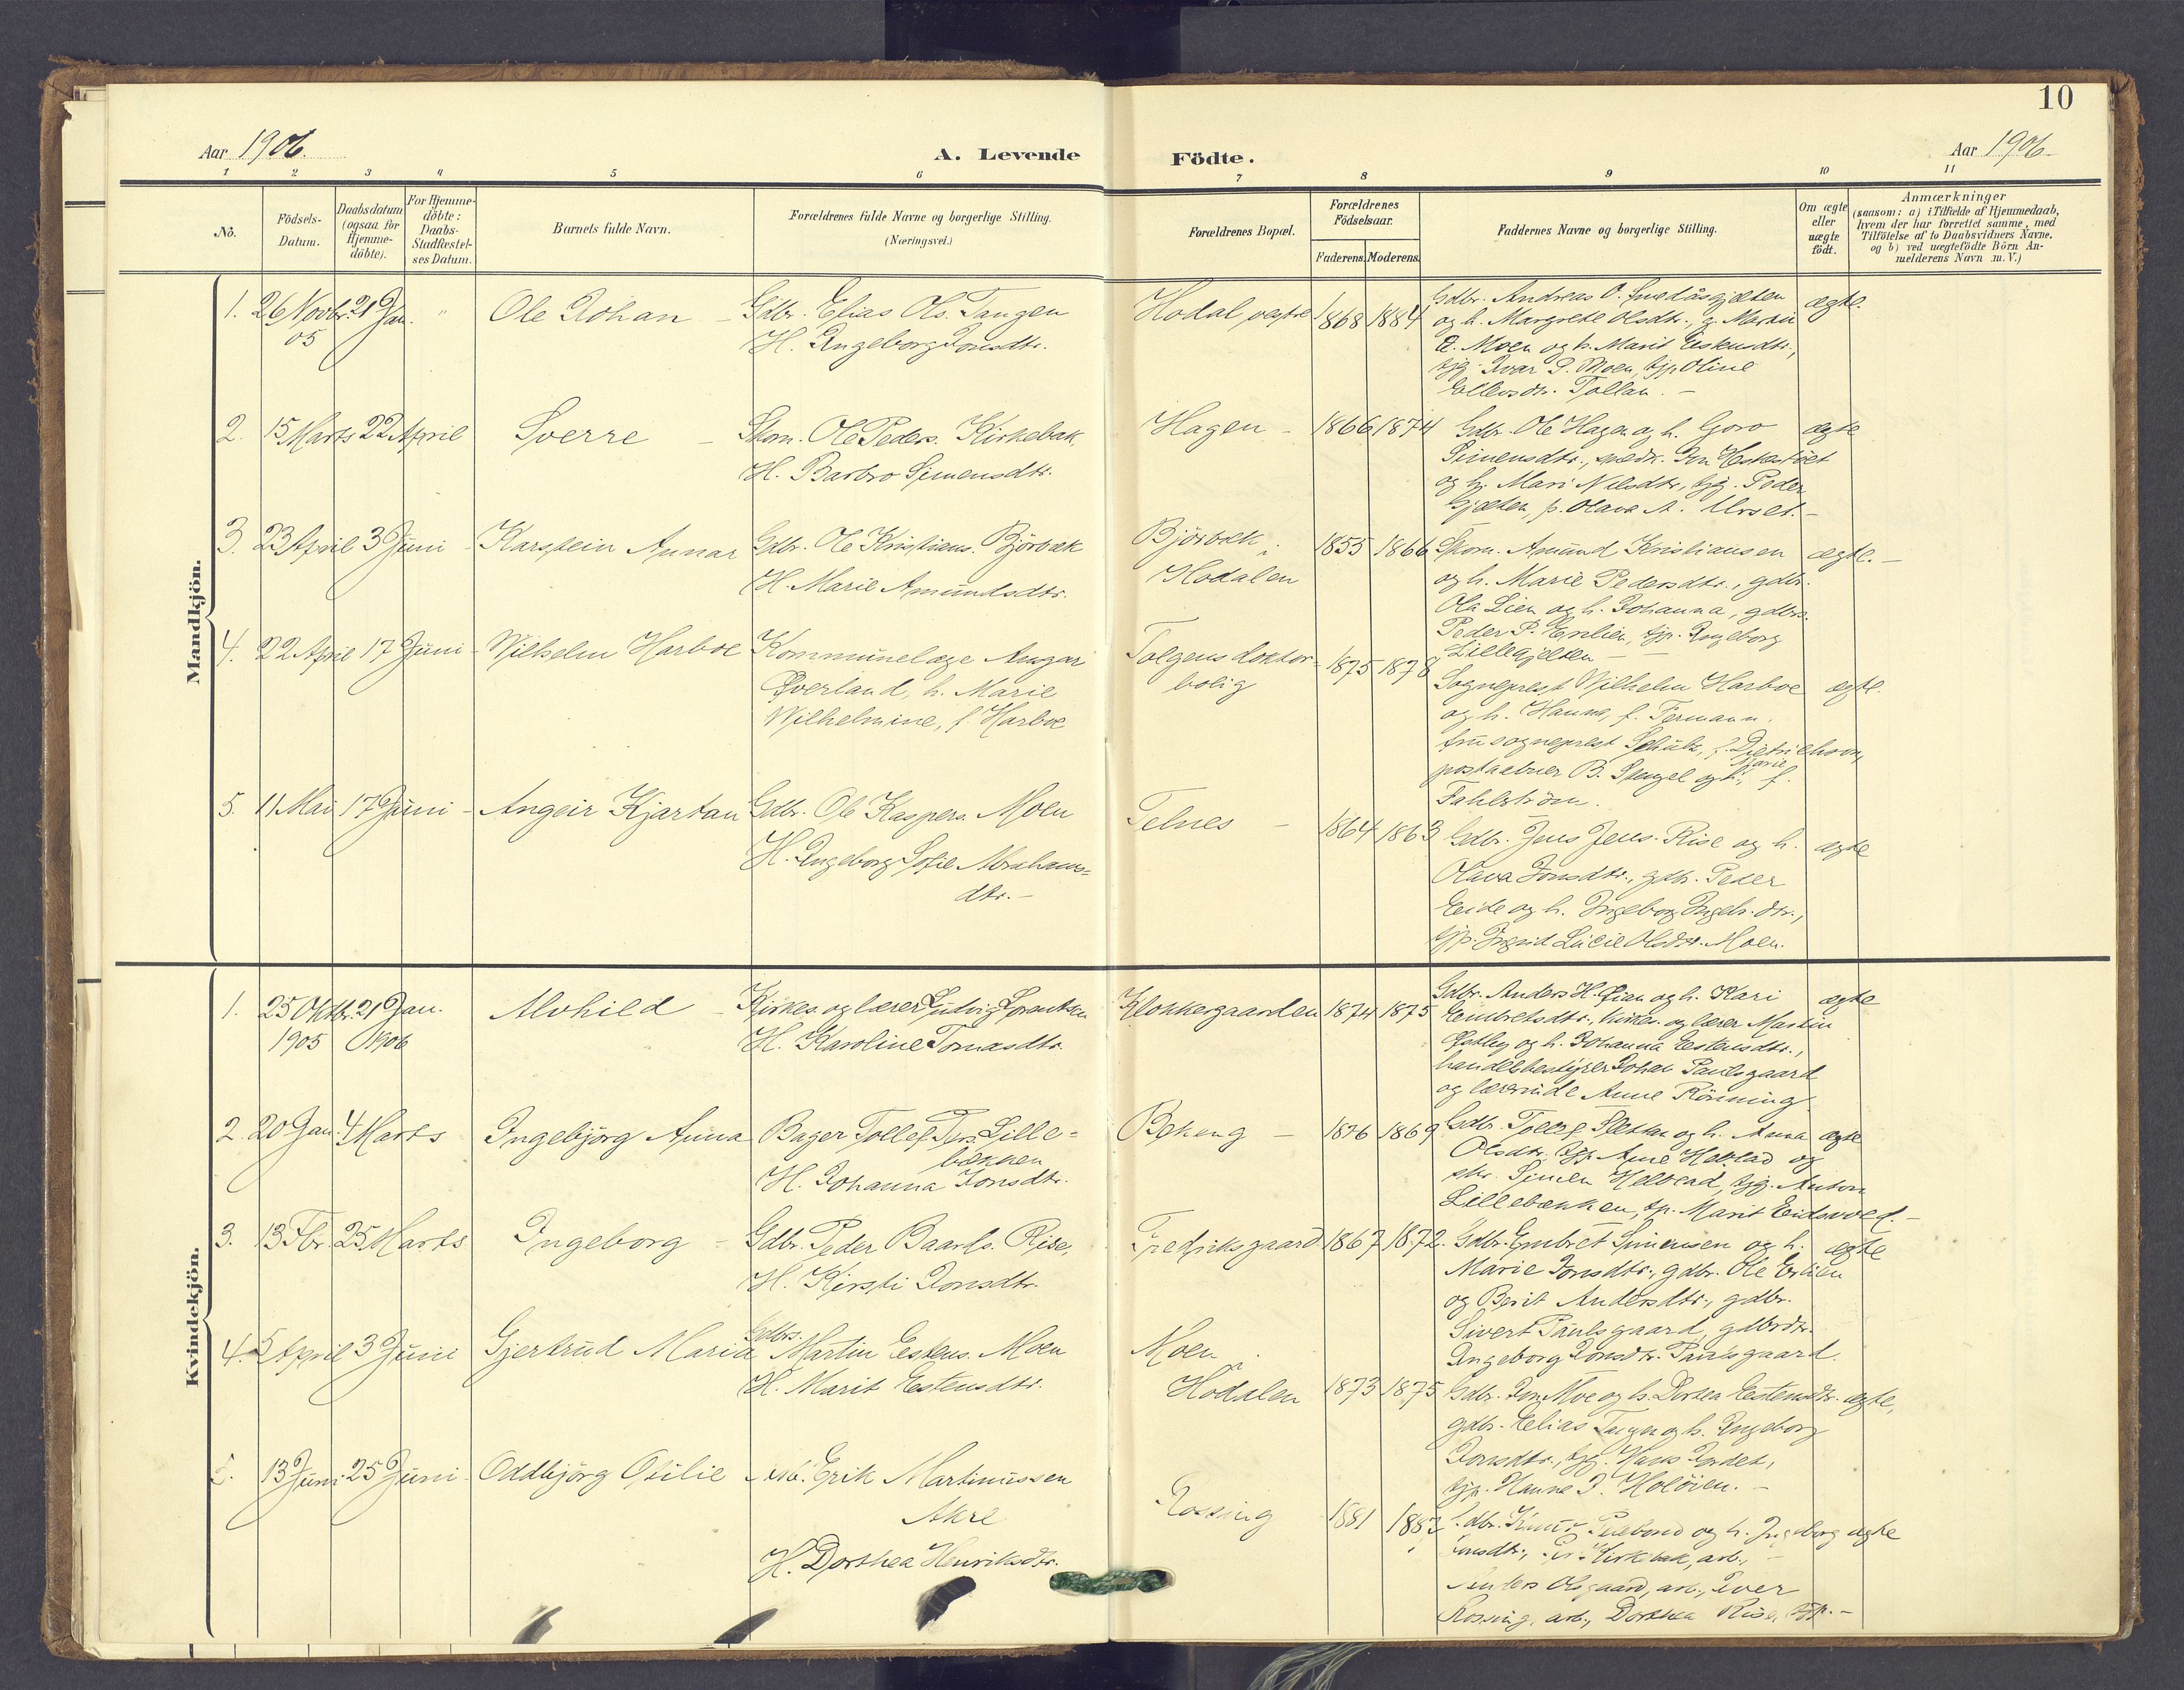 10
Aar 1906.
A. Levende Födte.
Aar 1906.
1 2 3 4 5 6 7 8 9 10 11
No.
Födsels-
Datum.
Daabsdatum
(ogsaa for
Hjemme-
döbte).
For Hjemme-
döbte:
Daabs-
Stadfæstel-
ses Datum.
Barnets fulde Navn.
Forældrenes fulde Navne og borgerlige Stilling.
(Næringsvei.)
Forældrenes Bopæl.
Forældrenes
Födselsaar.
Faderens. Moderens.
Faddernes Navne og borgerlige Stilling.
Om ægte
eller
uægte
födt.
Anmærkninger
(saasom: a) i Tilfælde af Hjemmedaab,
hvem der har forrettet samme, med
Tilföielse af to Daabsvidners Navne.
og b) ved uægtefödte Börn An-
melderens Navn m. V.)
Mandkjön.
1. 26 Novbr. 05 21 Jan. " Ole Johan -
Gdbr. Elias Ols. Tangen
H. Ingeborg Jonsdtr.
Hodal vestre 1868 1884
Gdbr. Andreas O. Smedåsgjelten
og h. Margrete Olsdtr., g. Martin
E. Moen og h. Marit Estensdtr.,
tjg. Ivar P. Moen, tjp. Oline
Ellevsdtr. Tollan. -
ægte.
2. 15 Marts 22 April Sverre -
Skom. Ole Peders. Kirkebak,
H. Barbro Simensdtr.
Hagen - 1866 1874
Gdbr. Ole Hagen og h. Goro
Simensdtr., Jon
og h. Mari Nilsdtr., tjg. Peder
Gjelten, p. Olava A. Urset. -
ægte
3. 23 April 3 Juni - Karstein Annar
Gdbr. Ole Kristians. Björbæk
H. Marie Amundsdtr.
Björbæk i
Hodalen
1855 1866
Skom. Amund Kristiansen
og h. Marie Pedersdtr., gdbr.
Ola Lien og h. Johanna, gdbrs.
Peder P. Erlien, tjp. Ingeborg
Lillegjelten -
ægte. -
4. 22 April 17 Juni - Wilhelm Harboe
Kommunelæge Ansgar
Överland, h. Marie
Wilhelmine, f. Harboe
Tolgens doktor-
bolig
1875 1878
Sogneprest Wilhelm Harboe
og h. Hanna, f. Fermann,
fru sogneprest Schulz, f. Dietrichson,
postaabner B. Stengel og h., Marie f.
Fahlström.
ægte.
5. 11 Mai 17 Juni - Angeir Kjartan
Gdbr. Ole Kaspers. Moen
H. Ingeborg Sofie Abrahams=
dtr. -
Telnes - 1864 1863
Gdbr. Jens Jens. Rise og h.
Olava Jonsdtr., gdbr. Peder
Eide og h. Ingeborg Ingebr.dtr.,
tjp. Ingrid Lucie Olsdtr. Moen.
ægte
Kvindekjön.
1. 25 Oktbr. 1905 21 Jan. 1906 Alvhild -
Kirkes. og lærer Ludvig Lorentsen
H. Karoline Tomasdtr.
Klokkergaarden 1874 1875
Gdbr. Anders H. Öian og h. Kari
Embretsdtr., kirkes. og lærer Martin
Östby og h. Johanna Estensdtr.,
handelsbestyrer Johan Paulsgaard
og lærerinde Anne Rönning
ægte
2. 20 Jan. 4 Marts Ingebjörg Anna
Bager Tollef Ters. Lille=
bækken
H. Johanna Jonsdtr.
Bekeng - 1876 1869
Gdbr. Tollef Sletten og h. Anna
Olsdtr. tjp. Anne og
Simen tjg. Anton
Lillebækken, tp. Marit Eidsvold. -
ægte
3. 13 Fbr. 25 Marts Ingeborg -
Gdbr. Peder Baards. Rise,
H. Kirsti Jonsdtr.
Fredriksgaard 1867 1872.
Gdbr. Embret Simensen og h.
Marie Jonsdtr., gdbr. Ole Erlien
og Berit Andersdtr., gdbr.
Sivert Paulsgaard, gdbrdtr.
Ingeborg Jonsdtr. Paulsgaard.
ægte
4. 5 April 3 Juni Gjertrud Maria
Gdbrs. Martin Estens. Moen
H. Marit Estensdtr.
Moen i
Hodalen
1873 1875
Gdbr. Jon Moe og h. Dortea Estensdtr.
gdbr. Elias Tangen og h. Ingeborg
Jonsdtr., tjg. Hans Jordet,
tjp. Hanna J. Holöien. -
ægte,
5. 13 Juni 25 Juni - Oddbjörg Otilie
Arb. Erik Martinussen
Akre
H. Dorthea Henriksdtr.
Rossing 1881 1883
Gdbr. Knut og h. Ingeborg
Jonsdtr., Kirkebak, arb.,
Anders Olsgaard, arb., Iver
Rossing, arb., Dorthea Rise, tjp. -
ægte